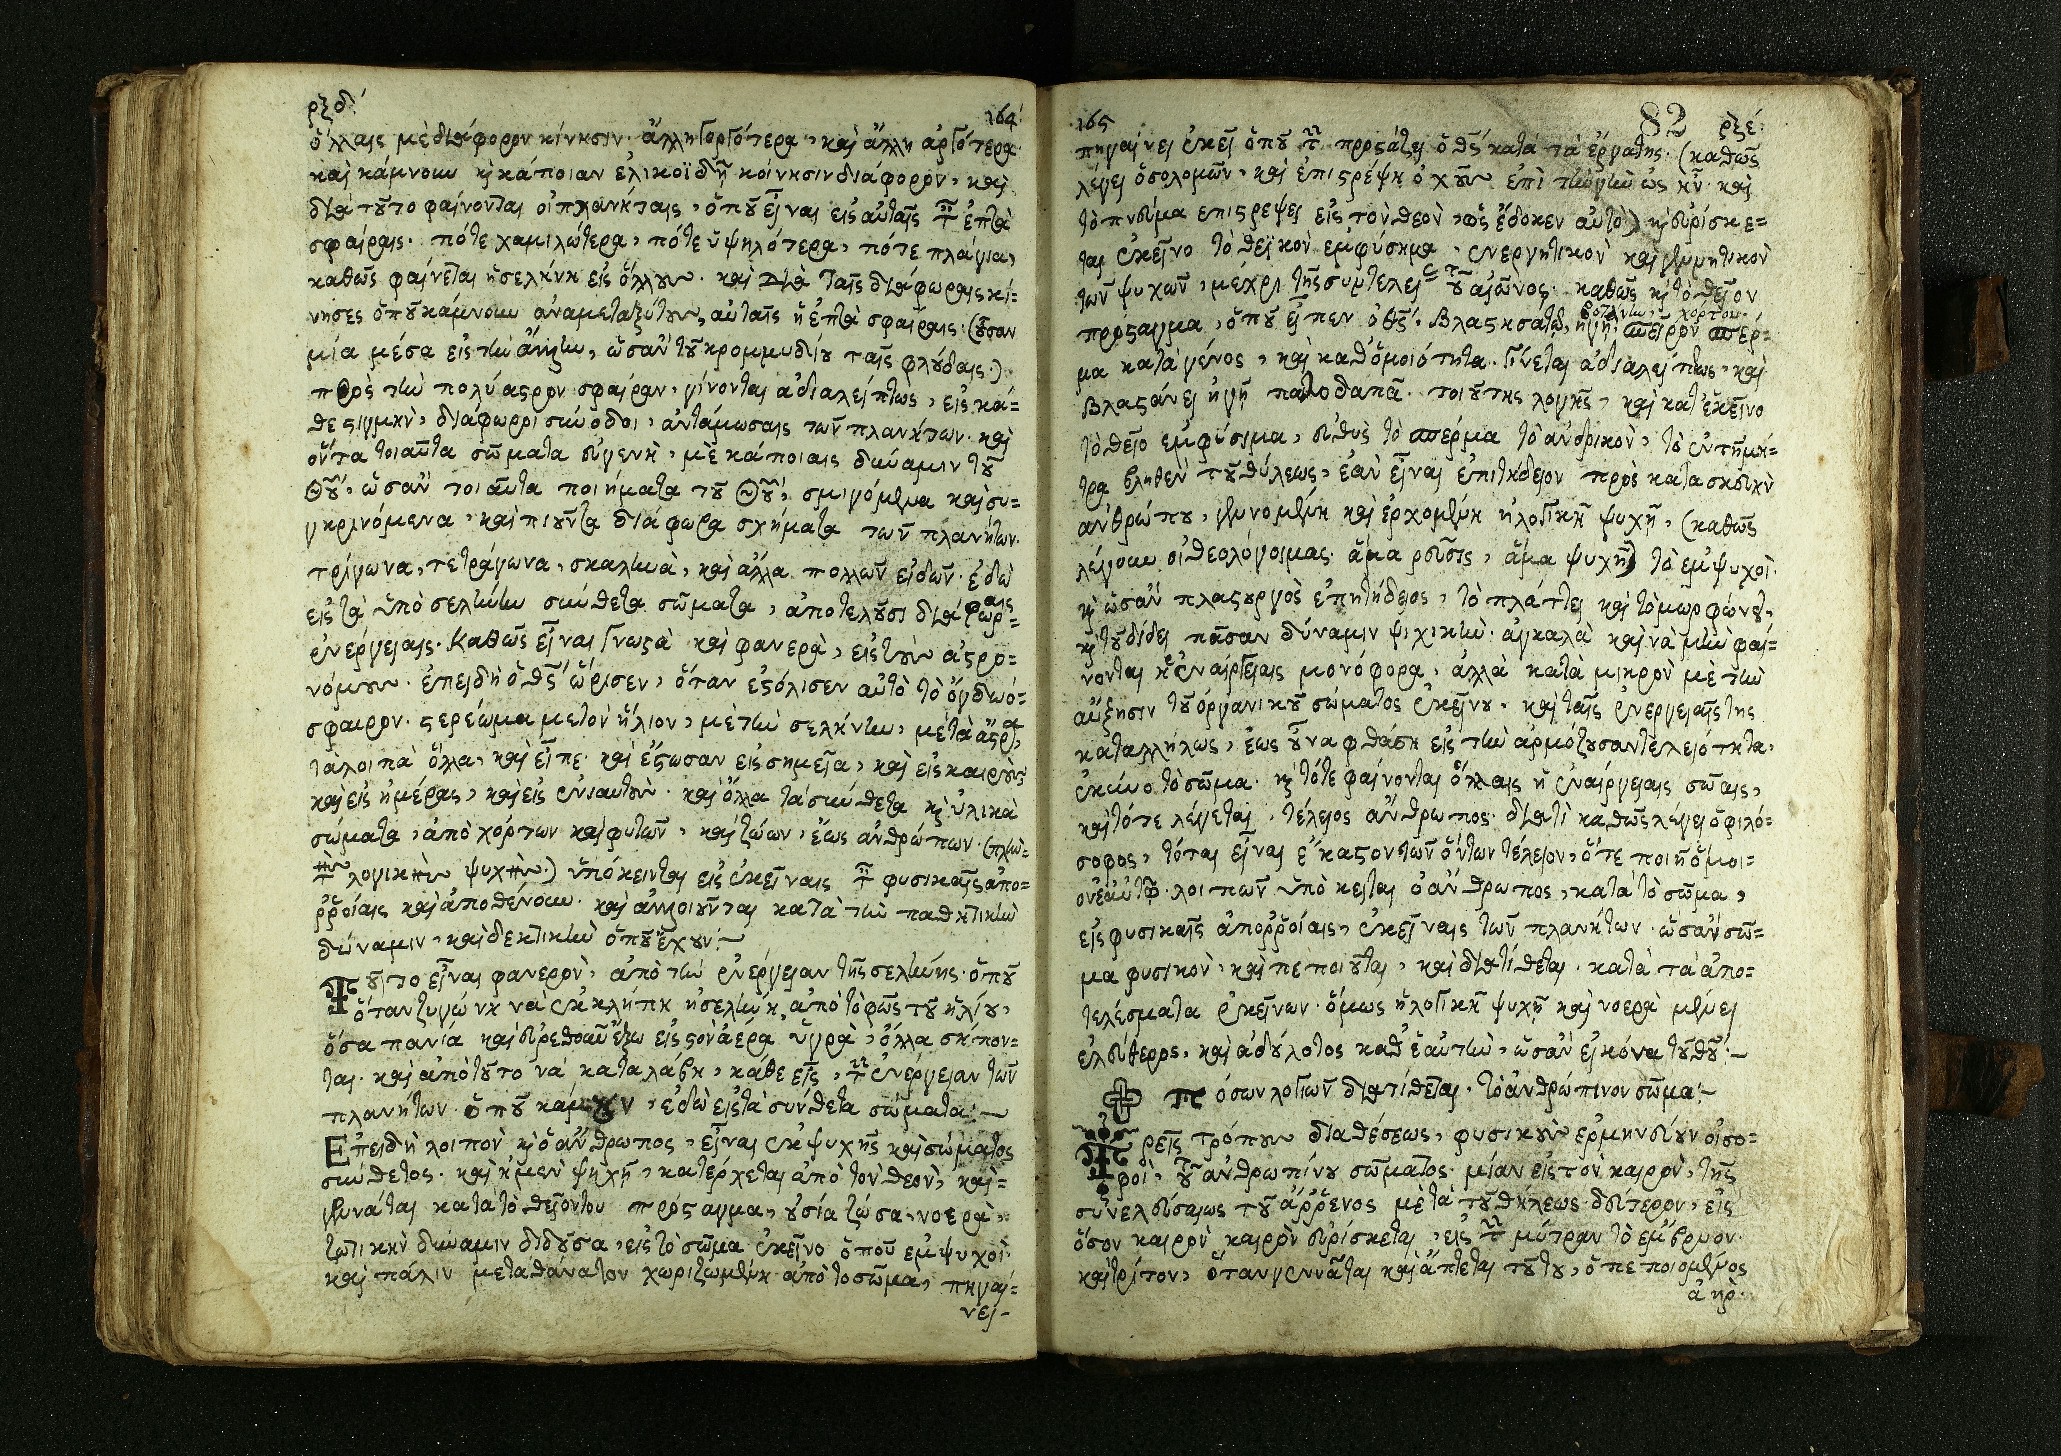 ρξδ΄ 164
ὅλλαις μὲ διάφορον κίνησιν· ἄλλη γοργότερα, καὶ ἄλλη ἀργότερα·
καὶ κάμνουν κὶ κάποιαν ἑλικοϊδῆ κοίνησιν διάφορον, καὶ
διὰ τοῦτο φαίνονται οἱ πλάνηταις, ὁποῦ εἶναι εἰς αὐταῖς ταῖς ἑπτὰ
σφαίραις· πότε χαμιλώτερα, πότε ὑψηλότερα, πότε πλάγια,
καθὼς φαίνεται ἡ σελήνη εἰς ὅλλους· καὶ διὰ ταῖς διάφωραις κι=
νησες ὁποῦ κάμνουν ἀναμεταξύτους, αὐταῖς ἡ ἑπτὰ σφαίραις· (οὖσαν
μία μέσα εἰς τὴν ἄλλην, ὡσὰν τοῦ κρομμυδίου ταῖς φλούδαις·)
πρὸς τὴν πολύαστρον σφαίραν, γίνονται ἀδιαλείπτως, εἰς κά=
θε στιγμὴν, διάφωροι σύνοδοι, ἀντάμωσαις τῶν πλανήτων· καὶ
ὄντα τοιαῦτα σώματα εὐγενῆ, μὲ κάποιαις δύναμιν τοῦ
Θεοῦ, ὡσὰν τοιαῦτα ποιήματα τοῦ Θεοῦ, σμιγόμενα καὶ συ=
γκρινόμενα, καὶ ποιοῦντα διάφωρα σχήματα τῶν πλανήτων·
τρίγωνα, τετράγωνα, σκαληνὰ, καὶ ἄλλα πολλῶν εἰδῶν· ἐδῶ
εἰς τὰ ὑπὸ σελήνην σύνθετα σώματα, ἀποτελοῦσι διαφωραις
ἐνέργειαις· Καθὼς εἶναι γνωστὰ καὶ φανερὰ, εἰς τοὺς ἀστρο=
νόμους· ἐπειδὴ ὁ Θεὸς ὥρισεν, ὅταν ἐστόλισεν αὐτὸ τὸ ὀγδωό=
σφαιρον· στερέωμα με τὸν ἥλιον, μὲ τὴν σελήνην, μὲ τὰ ἄστρα,
τὰ λοιπὰ ὅλλα, καὶ εἶπε· καὶ ἔστωσαν εἰς σημεῖα, καὶ εἰς καιροὺς
καὶ εἰς ἡμέρας, καὶ εἰς ἐνιαυτοὺς· καὶ ὅλλα τὰ σύνθετα κὶ ὑλικὰ
σώματα, ἀπὸ χόρτων καὶ φυτῶν, καὶ ζώων, ἕως ἀνθρώπων· (πλὴν
τὴν λογικὴν ψυχὴν) ὑπόκεινται εἰς ἐκείναις ταῖς φυσικαῖς ἀπο=
ρροίαις καὶ ἀποθένουν· καὶ ἀλλοιοῦνται κατὰ τὴν παθητικὴν
δύναμιν, καὶ δεκτικὴν ὁποῦ ἔχουν:~
Τοῦτο εἶναι φανερὸν, ἀπὸ τὴν ἐνέργειαν τῆς σελήνης· ὁποῦ
ὅταν ζυγώνη νὰ ἐκκλήπη ἡ σελήνη, ἀπὸ τὸ φῶς τοῦ ἡλίου,
ὅσα πανία καὶ εὑρεθοῦν ἔξω εἰς τὸν ἀέρα ὑγρὰ, ὅλλα σήπον=
ται· καὶ ἀπὸ τοῦτο νὰ καταλάβη, κάθε εἷς, τὴν ἐνέργειαν τῶν
πλανήτων· ὁποῦ κάμουν, ἐδῶ εἰς τὰ σύνθετα σώματα:~
Ἐπειδὴ λοιπὸν κὶ ὁ ἄνθρωπος, εἶναι ἐκ ψυχῆς καὶ σώματος
σύνθετος· καὶ ἡ μὲν ψηχὴ, κατέρχεται ἀπὸ τὸν θεὸν, καὶ=
γεννάται κατὰ τὸ θεῖόν του πρόσταγμα, οὐσία ζῶσα, νοερὰ,
ζωτικὴν δύναμιν διδοῦσα, εἰς τὸ σῶμα ἐκεῖνο ὁποῦ ἐμψυχοῖ·
καὶ πάλιν μετὰ θάνατον χωριζωμένη ἀπὸ το σῶμα, πηγαί=
νει-
165 82 ρξε΄
πηγαίνει ἐκεῖ ὁποῦ τὴν προστάζει ὁ Θεὸς κατὰ τὰ ἔργα της· (καθὼς
λέγει ὁ σολομῶν, καὶ ἐπιστρέψη ὁ χοῦς ἐπὶ τὴν γῆν ὡς ἦν· καὶ
τὸ πνεῦμα ἐπιστρέψει εἰς τὸν θεὸν, ὃς ἔδοκεν αὐτὸ) κὶ εὑρίσκε=
ται ἐκεῖνο τὸ θεϊκὸν ἐμφύσημα, ἐνεργητικὸν καὶ γεννητικὸν
τῶν ψυχῶν, μέχρι τῆς συντελείας τοῦ αἰῶνος· καθὼς κὶ τὸ θεῖον
πρόσταγμα, ὁποῦ εἶπεν ὁ Θεὸς· Βλαστησάτω ἡ γῆ, βοτάνην χόρτου· σπεῖρον σπέρ=
μα κατὰ γένος, καὶ καθ᾽ ὁμοιότητα· Γίνεται ἀδιαλείπτως, καὶ
βλαστάνει ἡ γῆ παντοδαπᾶ· τοιούτης λογῆς, καὶ κατ᾽ ἐκεῖνο
τὸ θεῖο ἐμφύσιμα, εὐθὺς τὸ σπέρμα τὸ ἀνδρικὸν, τὸ ἐν τῇ μή=
τρα βληθὲν τοῦ θύλεως, ἐὰν εἶναι ἐπιτήδειον πρὸς κατασκευὴν
ἀνθρώπου, γεννομένη καὶ ἐρχομένη ἡ λογικὴ ψυχὴ, (καθὼς
λέγουν οἱ θεολόγοι μας· ἅμα ρεῦσις, ἅμα ψυχὴ) τὸ ἐμψυχοῖ·
κὶ ὡσὰν πλαστουργὸς ἐπητήδειος, τὸ πλάττει καὶ τὸ μωρφώνει,
κὶ τοῦ δίδει πᾶσαν δύναμιν ψιχικὴν· ἀγκαλὰ καὶ νὰ μὴν φαί=
νονται ἡ ἐναίργειαις μονόφορα, ἀλλὰ κατὰ μικρὸν μὲ τὴν
αὔξησιν τοῦ ὀργανικοῦ σώματος ἐκείνου, καὶ ταῖς ἐνεργείαις της
καταλλήλως, ἕως οὗ να φθάση εἰς τὴν ἁρμόζουσαν τελειότητα,
ἐκεῖνο τὸ σῶμα· κὶ τότε φαίνονται ὅλλαις ἡ ἐναίργειαις σώαις,
καὶ τότε λέγεται, τέλειος ἄνθρωπος· διατὶ καθὼς λέγει ὁ φιλό=
σοφος, τότε εἶναι ἕκαστον τῶν ὄντων τέλειον, ὅτε ποιῆ ὅμοι=
ον ἑαυτῷ· λοιπὼν ὑπόκειται ὁ ἄνθρωπος, κατὰ τὸ σῶμα,
εἰς φυσικαῖς ἀπορροίαις, ἐκείναις τῶν πλανήτων· ὡσὰν σῶ=
μα φυσικὸν, καὶ πεποιοῦται, καὶ διατίθεται· κατὰ τὰ ἀπο=
τελέσματα ἐκείνων· ὅμως ἡ λογικὴ ψυχὴ καὶ νοερὰ μένει
ἐλεύθερος, καὶ ἀδύλοτος καθ᾽ ἑαυτὴν, ὡσὰν εἰκόνα τοῦ θεοῦ:~
Πόσων λογιῶν διατίθεται, τὸ ἀνθρώπινον σῶμα:~
Τρεῖς τρόπους διαθέσεως, φυσικοὺς ἑρμηνεύουν οἱ σο=
φοὶ, τοῦ ἀνθρωπίνου σώματος· μίαν εἰς τὸν καιρὸν, τῆς
συνελεύσαιως τοῦ ἄρρενος μὲ τὰ τοῦ θήλεως· δεύτερον, εἰς
ὅσον καιρὸν καιρὸν εὑρίσκεται, εἰς τὴν μύτραν τὸ ἔμβρυον·
καὶ τρίτον, ὅταν γεννᾶται καὶ ἅπτεται τούτου, ὁ πεποιομένος
ἀήρ·